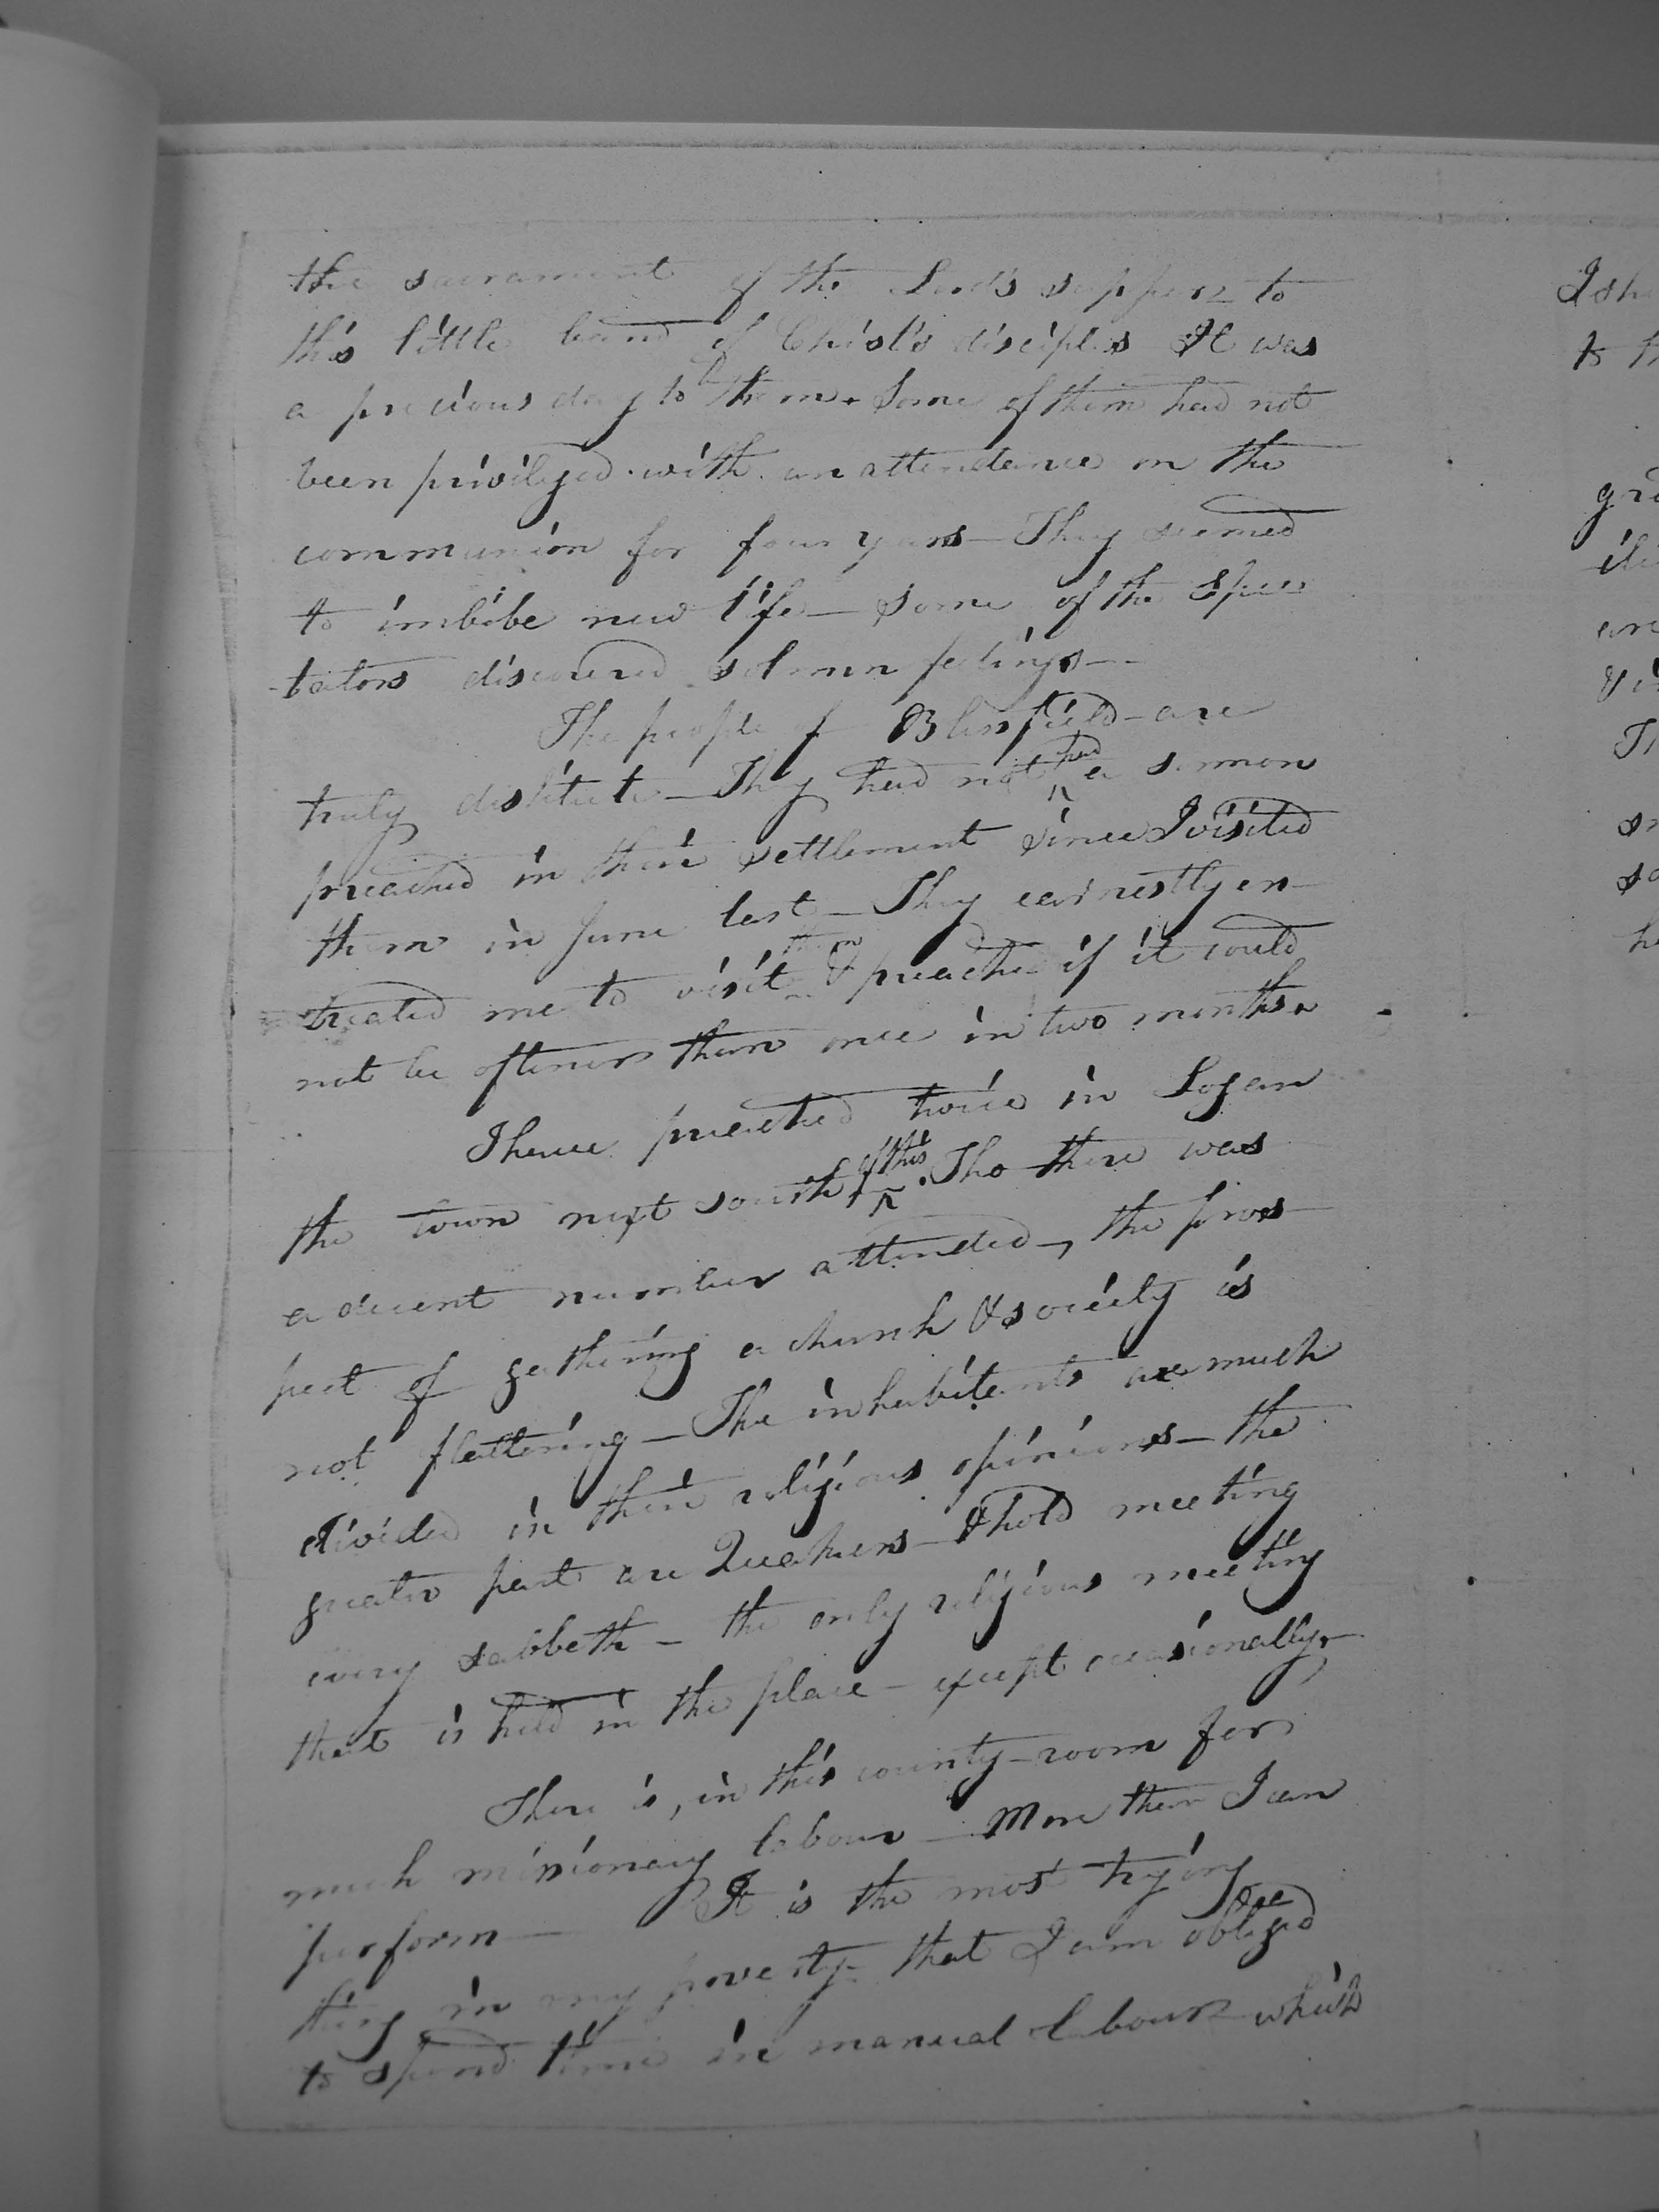 the sacrament of the Lord's supper to
this little band of Christ's disciples It was
a precious day to them. Some of them had not
been privileged with an attendance on the
communion for four years — They seemed
to imbibe new life — Some of the spec
tators discovered solemn feelings —
The people of Blinfield — are
truly destitute — They had not had a sermon
preached in their settlement since I visited
them in June last — They earnestly en-
treated me to visit them & preach if it could
not be oftener than once in two months.
I have preached twice in Logan
the town next south of this. Tho there was
a decent number attended, the pros-
pect of gathering a church & society is
not flattering — The inhabitants are much
divided in their religious opinions — the
greater part are Quakers — & hold meeting
every sabbath — the only religious meeting
that is held in the place — except occasionally.
There is, in this county — room for
much missionary labour — More than I can
perform — It is the most trying
thing in my poverty — that I am obliged
to spend time in manual labour which
I sh
to th
gr
are
Th
sa
he